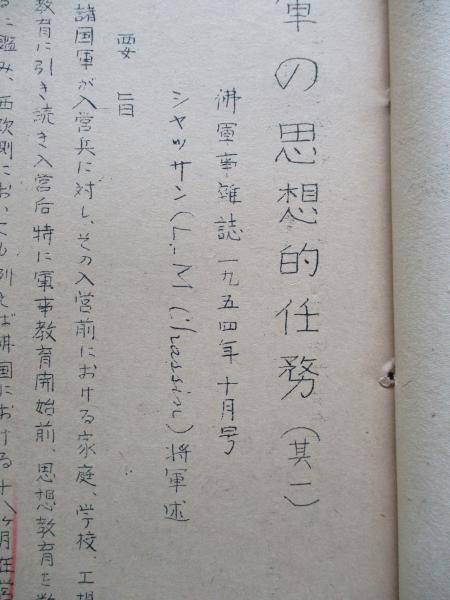 軍の思想的任務（其一）
佛軍事雑誌一九五四年十月号
シャッサン（L.M Chassin）将軍述
要旨
諸国軍が入営兵に対し、その入営前における家庭、学校、工場
教育に引き続き入営后特に軍事教育開始前、思想教育を
に鑑み、西欧側においても例えば佛国における十八ヶ月在営